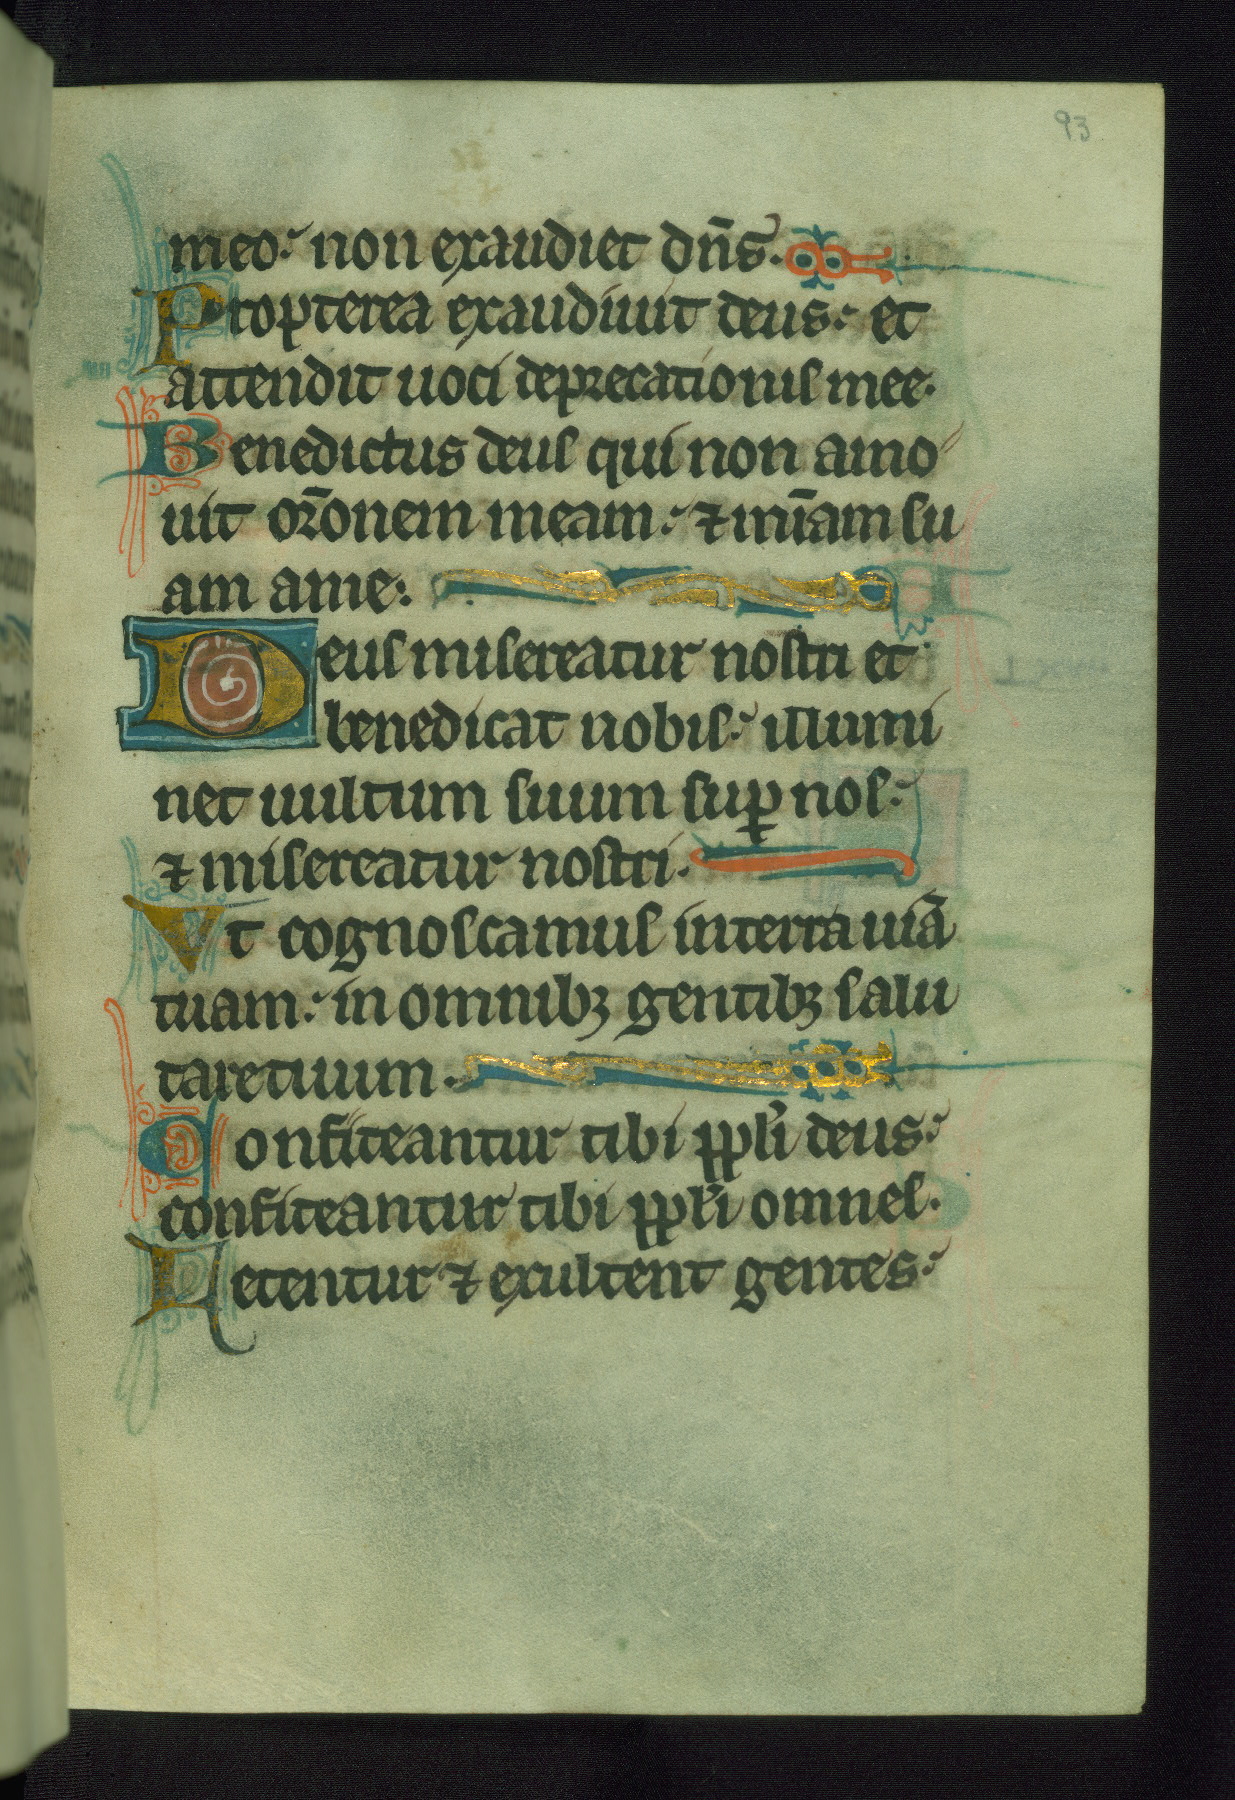 93
meo. non exaudiet dn̄s.
Propterea exaudiuit deus. et
attendit uoci deprecationis mee.
Benedictus deus qui non amo
uit or̄onem meam. ⁊ mīam su
am a me.
Deus misereatur nostri et
benedicat nobis. illumi
net uultum suum suꝑ nos.
⁊ misereatur nostri.
Vt cognoscamus in terra uiā
tuam. in omnibꝫ gentibꝫ salu
tare tuum.
Confiteantur tibi ppl̄i deus.
confiteantur tibi ppl̄i omnes.
Letentur ⁊ exultent gentes.